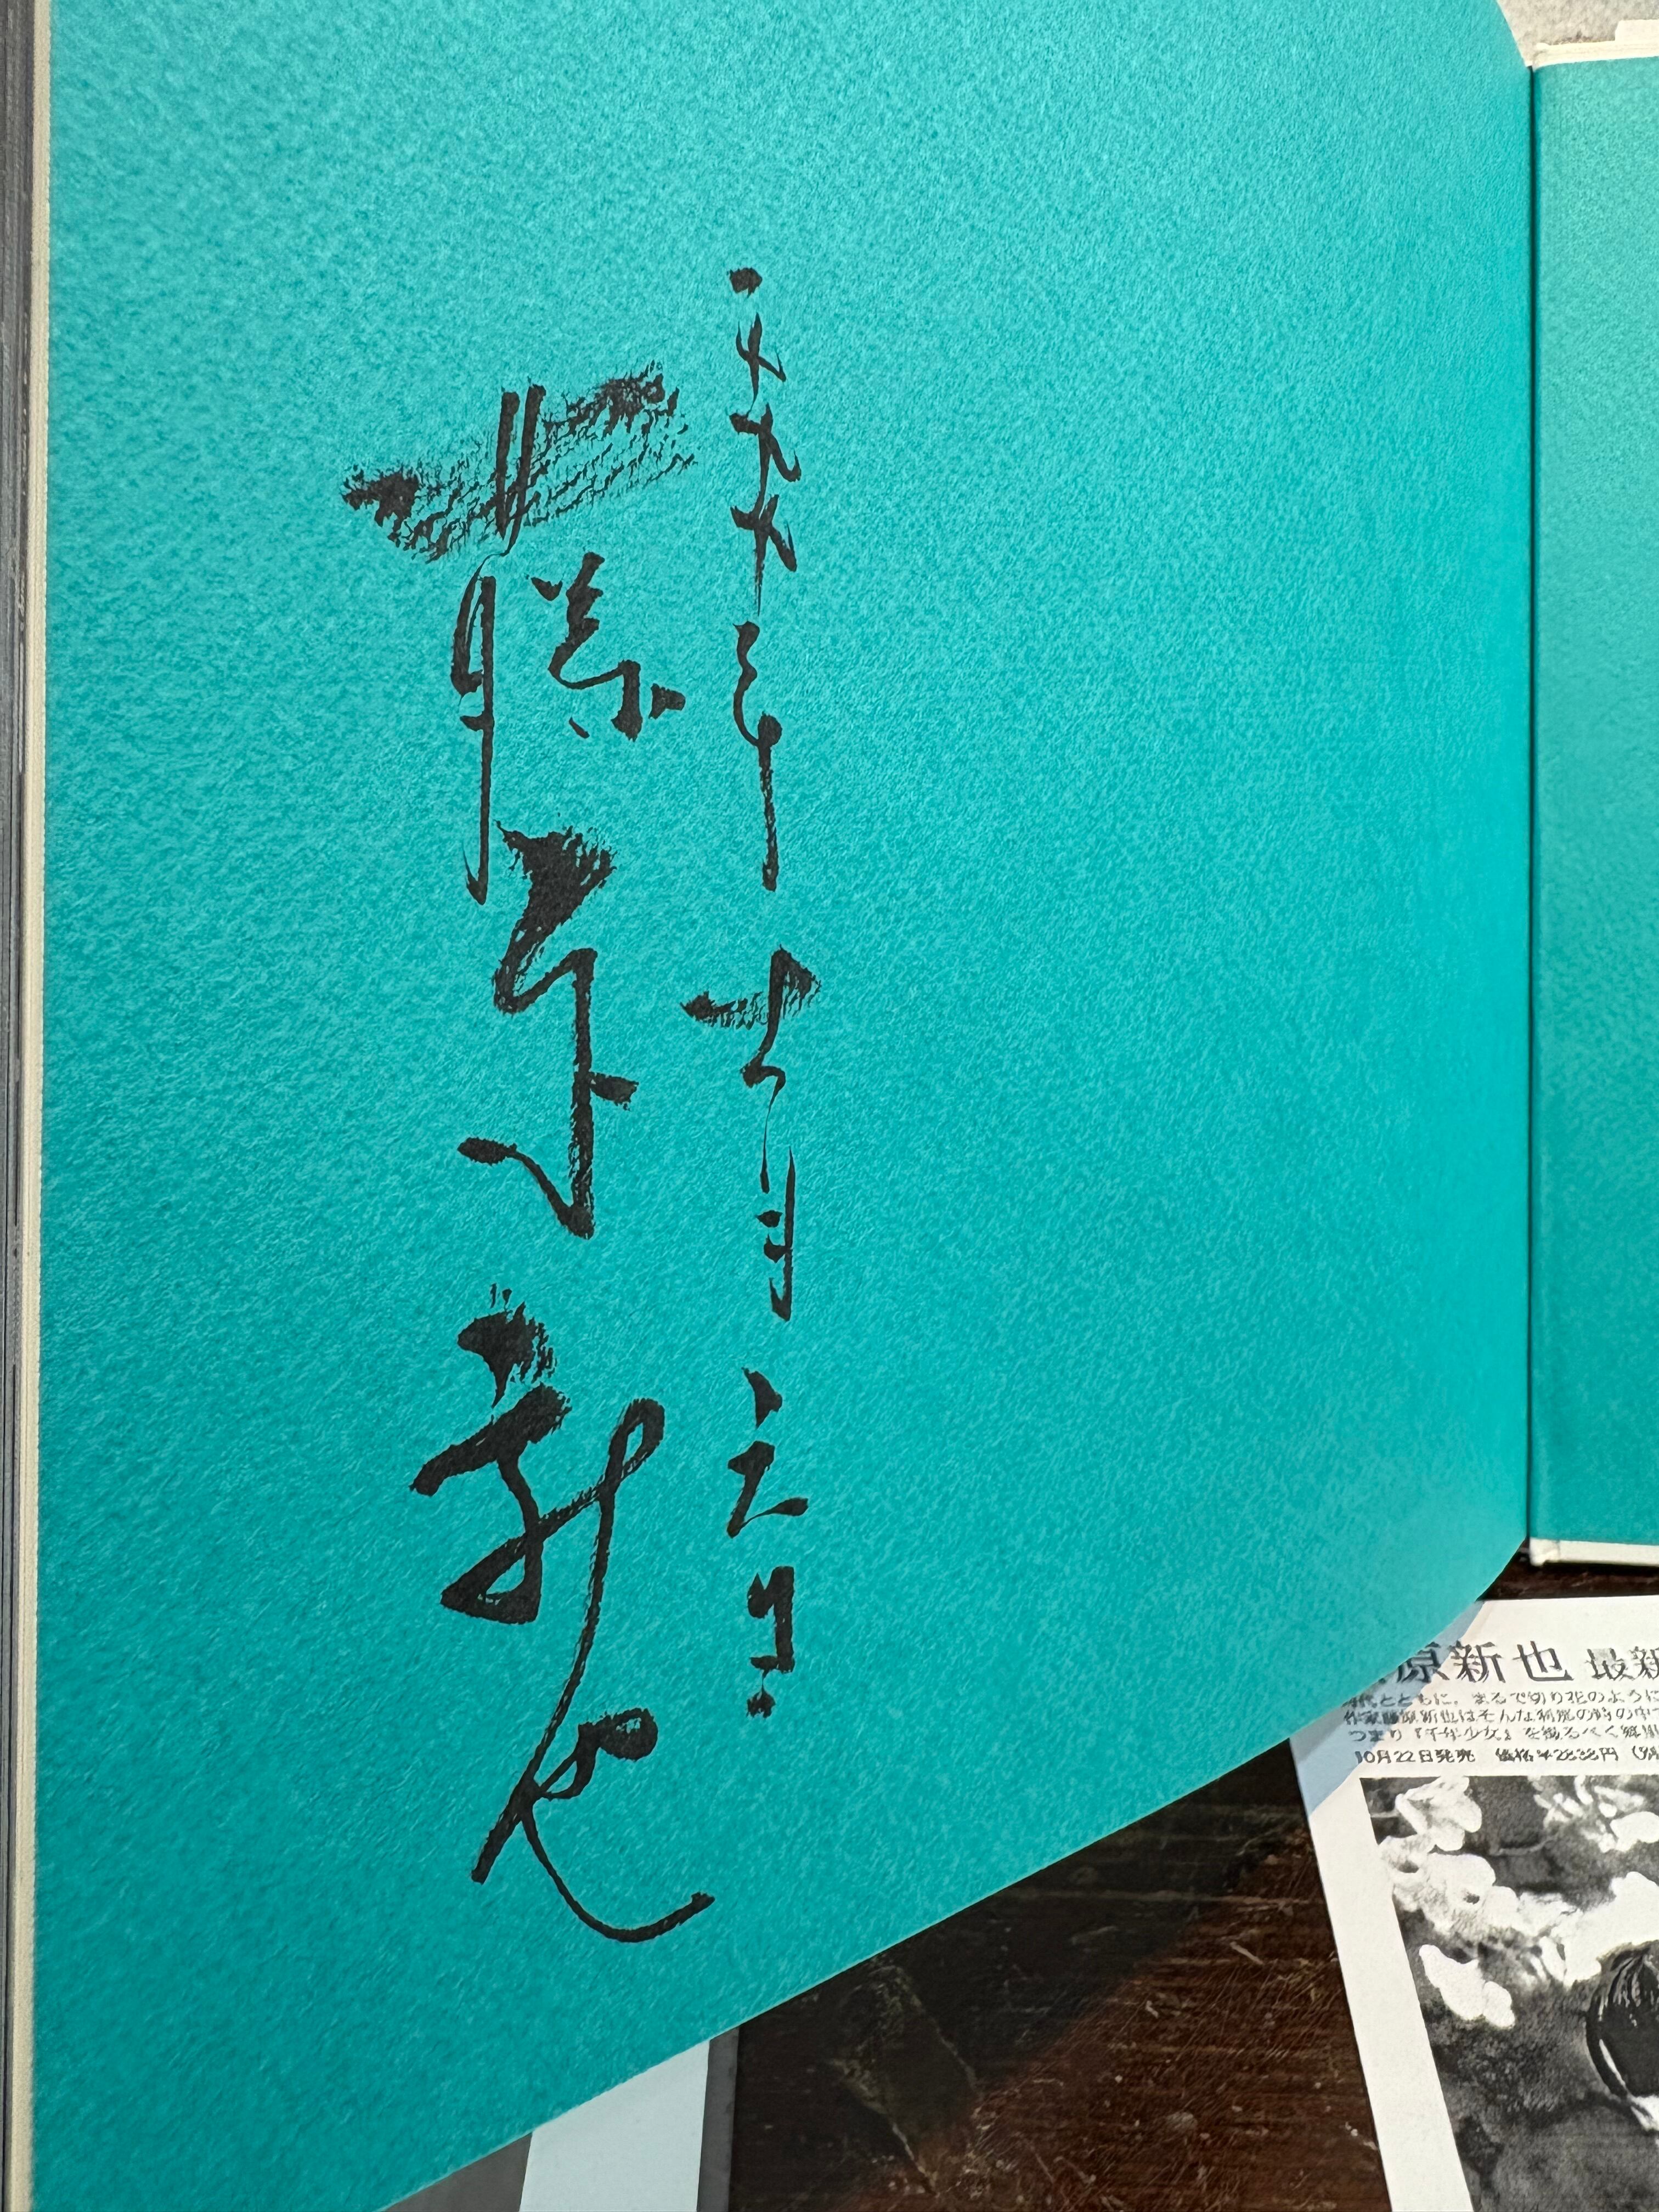 一九九九年
藤原新也
原新也 最新
代とともに、まるで切り花のように
作家藤原新也はそんな の時の中で
つまり『千年少女』を撮るべく郷里
10月22日発売 価格￥2838円（別